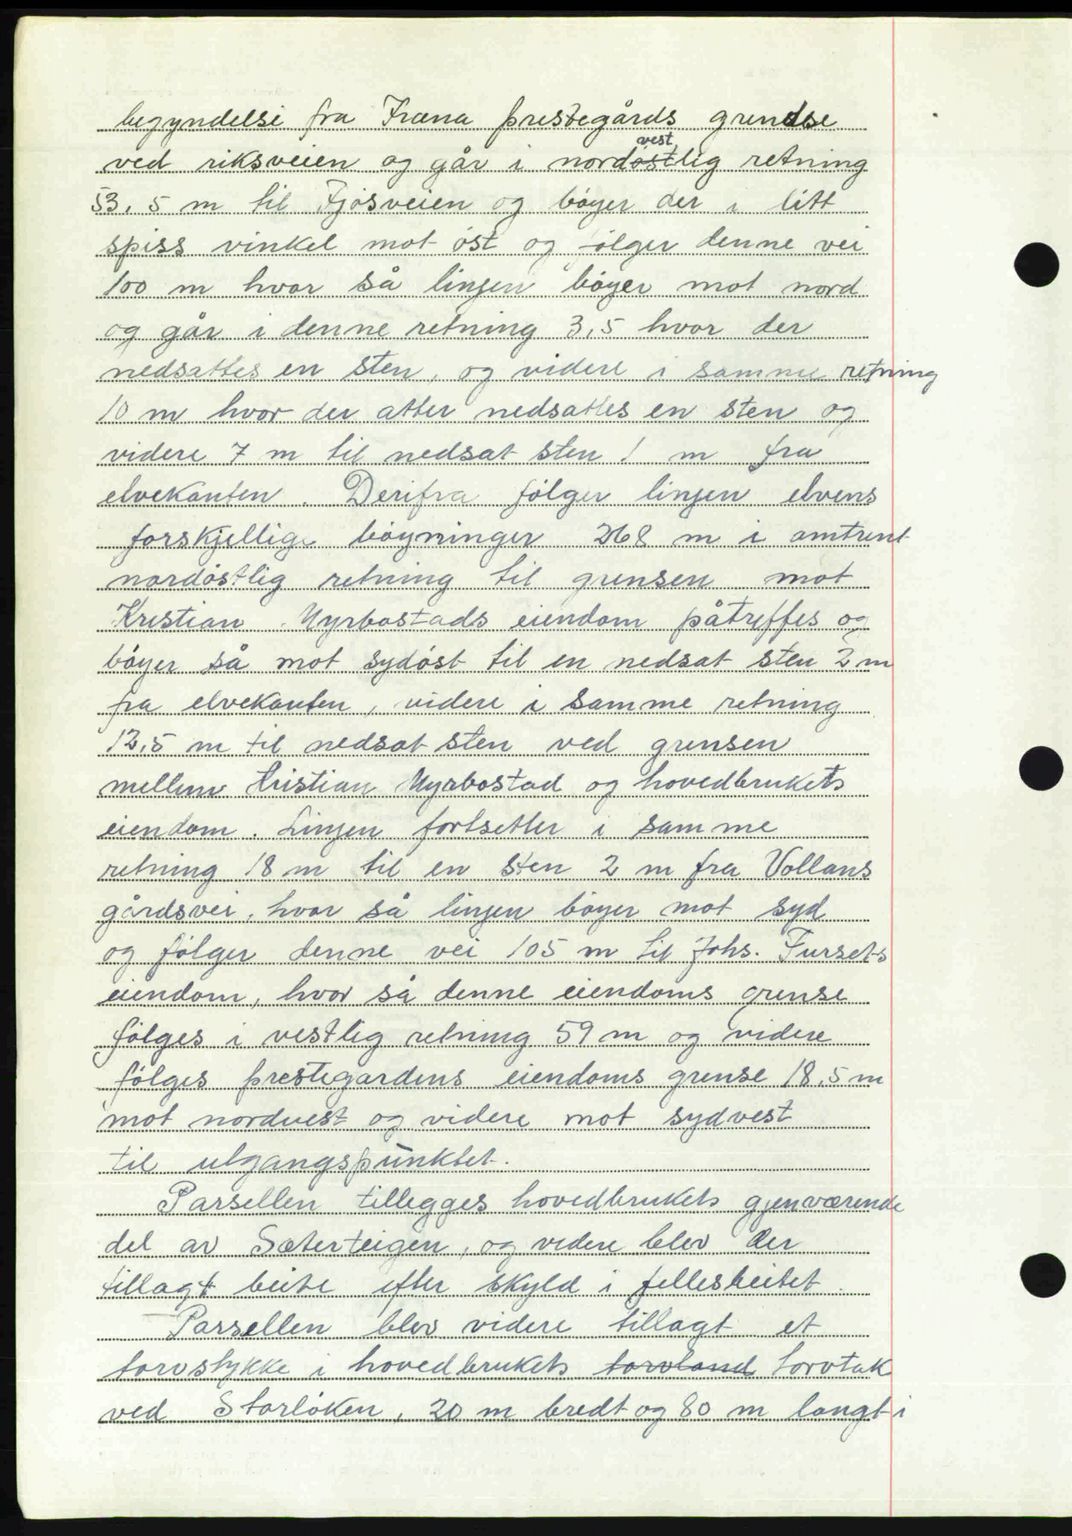 begyndelse fra Fræna prestegårds grendse
ved riksveien og går i nord~~øst~~vestlig retning
53,5 m til Fjøsveien og bøyer der i litt
spiss vinkel mot øst og følger denne vei
100 m hvor så linjen bøyer mot nord
og går i denne retning 3,5 hvor der
nedsattes en sten, og videre i samme retning
10 m hvor der atter nedsattes en sten og
videre 7 m til nedsat sten 1 m fra
elvekanten. Derifra følger linjen elvens
forskjellige bøyninger 268 m i omtrent
nordøstlig retning til grensen mot
Kristian Myrbostads eiendom påtreffes og
bøyer så mot sydøst til en nedsat sten 2 m
fra elvekanten, videre i samme retning
12,5 m til nedsat sten ved grensen
mellem Kristian Myrbostad og hovedbrukets
eiendom. Linjen fortsetter i samme
retning 18 m til en sten 2 m fra Vollans
gårdsvei, hvor så linjen bøyer mot syd
og følger denne vei 105 m til Johs. Fursets
eiendom, hvor så denne eiendoms grense
følges i vestlig retning 59 m og videre
følges prestegardens eiendoms grense 18,5 m
mot nordvest og videre mot sydvest
til utgangspunktet.
Parsellen tillegges hovedbrukets gjenværende
del av Sæterteigen, og videre blev der
tillagt beite efter skyld i fellesbeitet.
Parsellen blev videre tillagt et
torvstykke i hovedbrukets ~~torvland~~ torvtak
ved Storløken, 20 m bredt og 80 m langt i